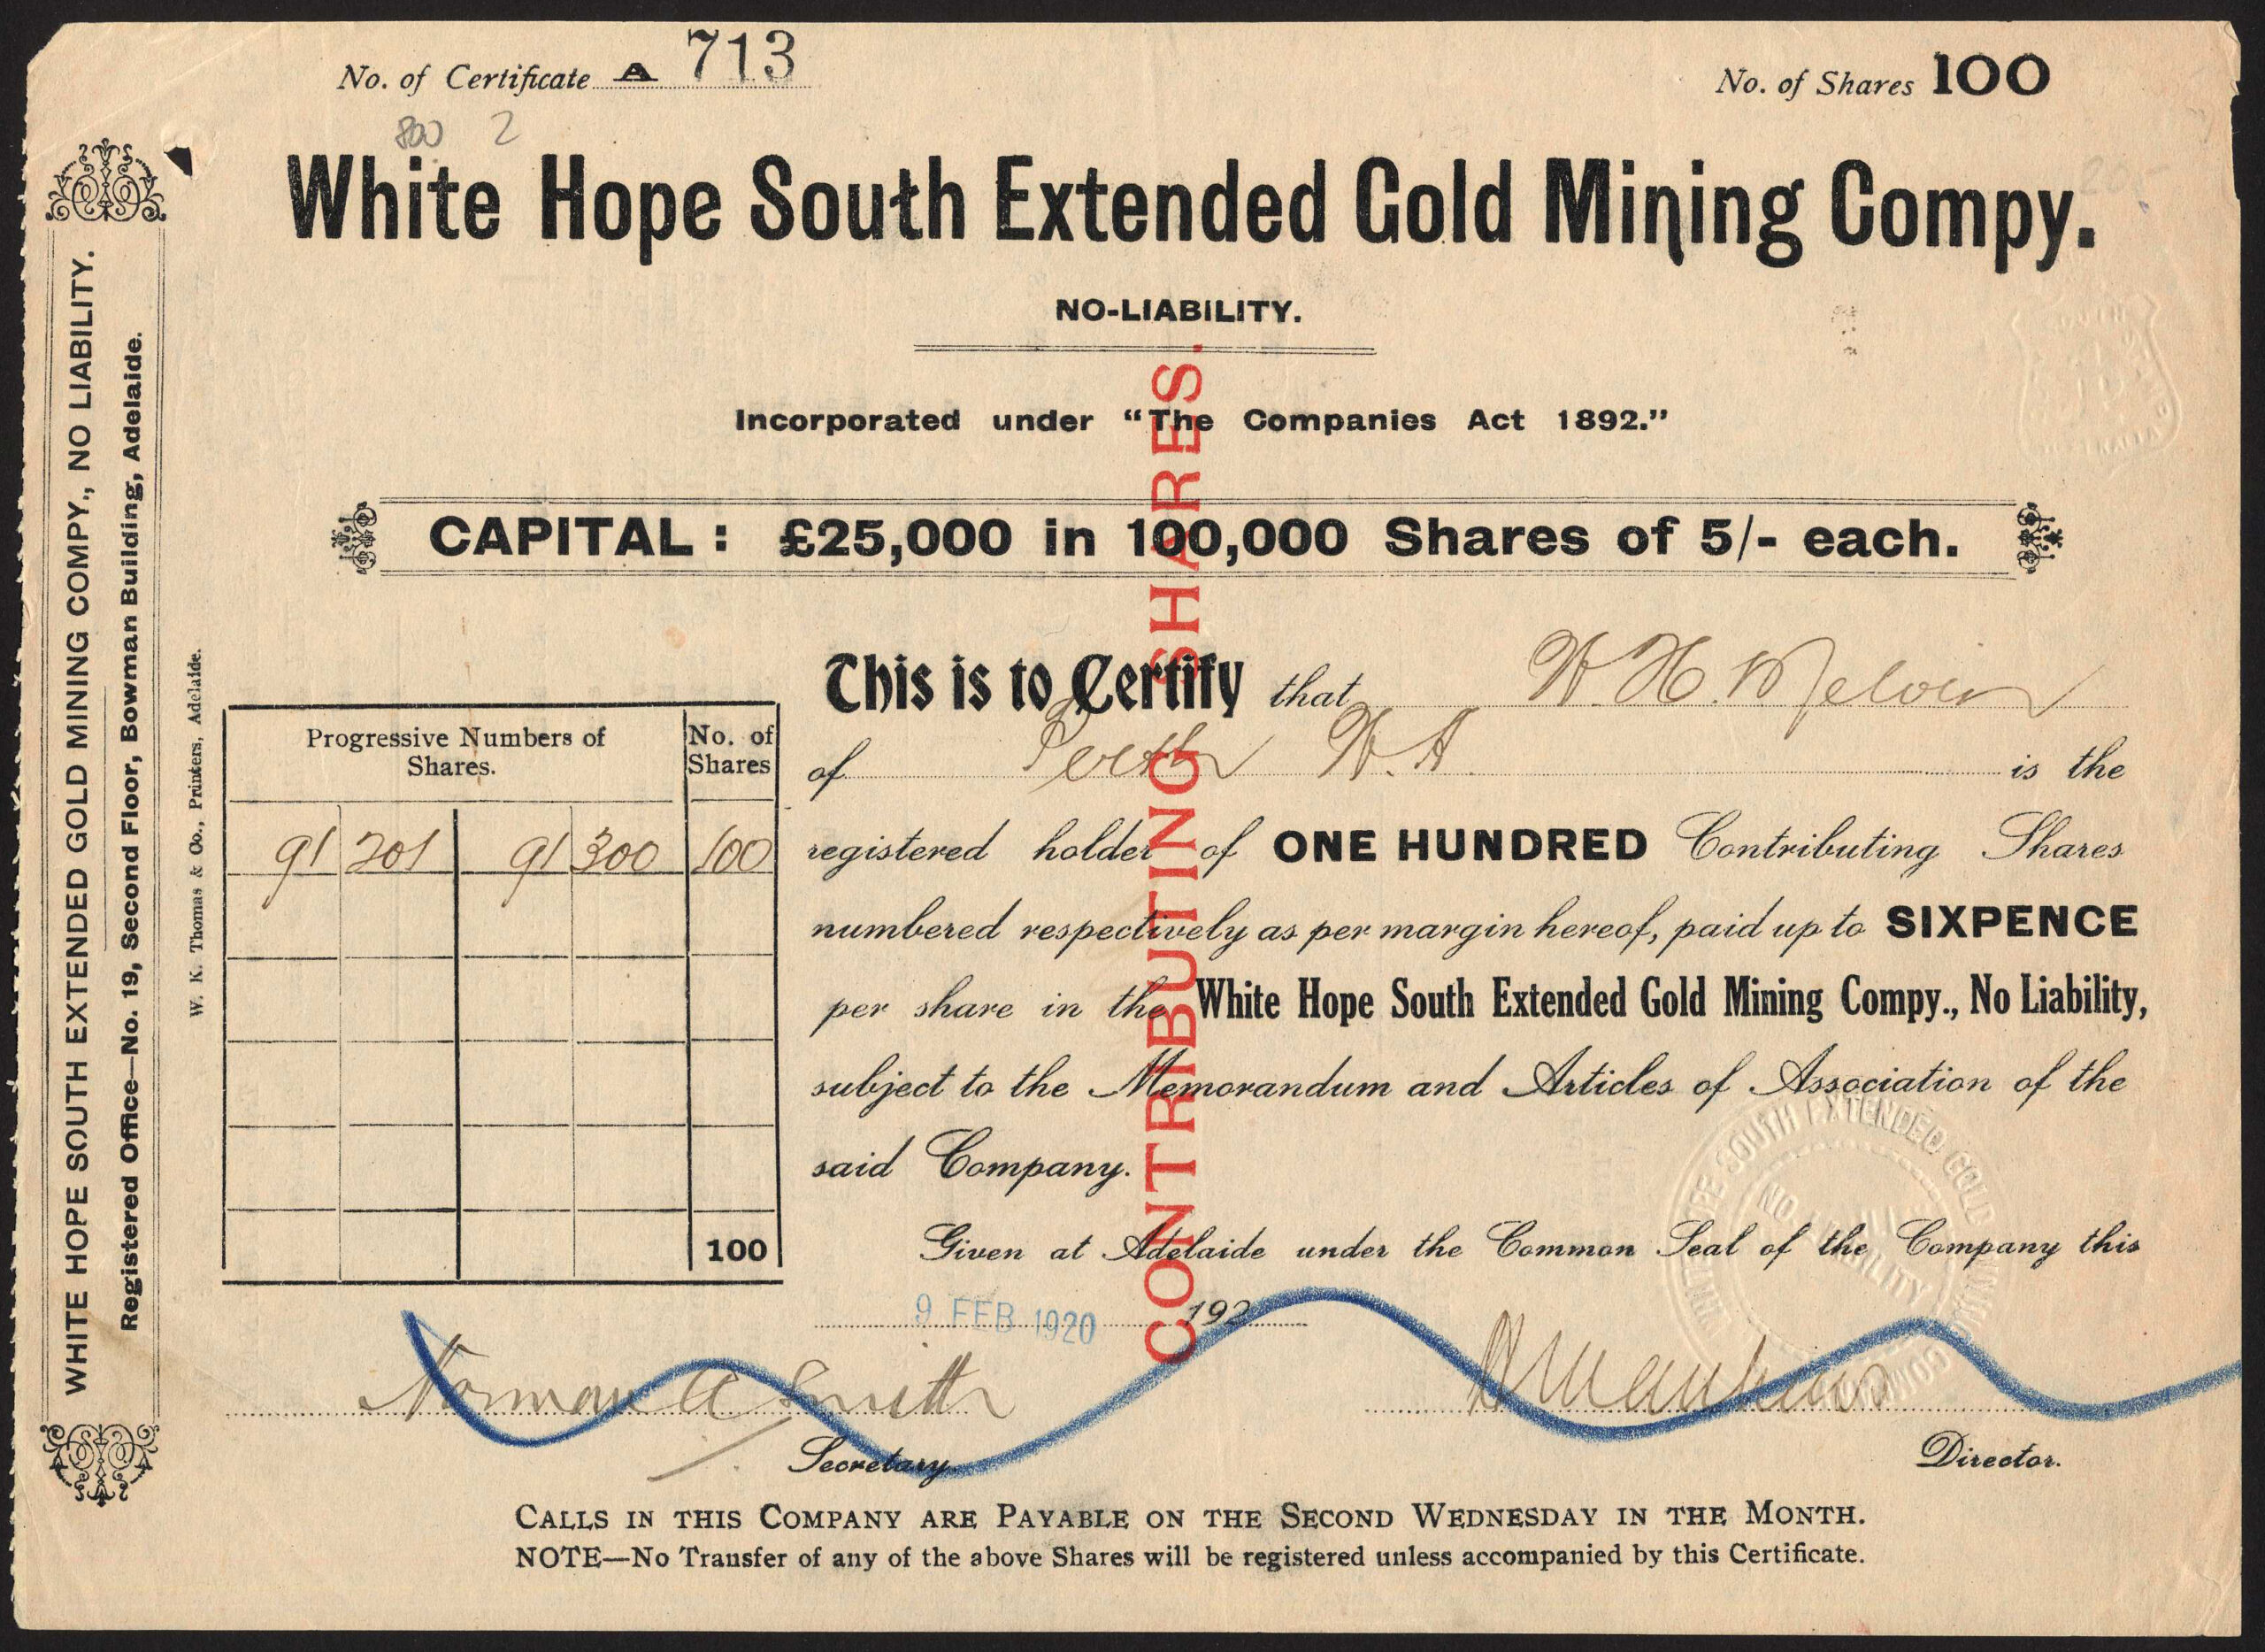 No. of Certificate A 713
No. of Shares 100
800 2
White Hope South Extended Gold Mining Compy.
NO-LIABILITY.
Incorporated under “The Companies Act 1892.”
CAPITAL: £25,000 in 100,000 Shares of 5/- each.
CONTRIBUTING SHARES.
WHITE HOPE SOUTH EXTENDED GOLD MINING COMPY., NO LIABILITY.
Registered Office—No. 19, Second Floor, Bowman Building, Adelaide.
W. K. Thomas & Co., Printers, Adelaide.
Progressive Numbers of Shares. No. of Shares
91 201 91 300 100
100
This is to Certify that W. H. Melvin
of Perth W.A. is the
registered holder of ONE HUNDRED Contributing Shares
numbered respectively as per margin hereof, paid up to SIXPENCE
per share in the White Hope South Extended Gold Mining Compy., No Liability,
subject to the Memorandum and Articles of Association of the
said Company.
Given at Adelaide under the Common Seal of the Company this
9 FEB 1920 192
Norman A Smith
Secretary.
Director.
SOUTH EXTENDED GOLD
NO LIABILITY
CALLS IN THIS COMPANY ARE PAYABLE ON THE SECOND WEDNESDAY IN THE MONTH.
NOTE—No Transfer of any of the above Shares will be registered unless accompanied by this Certificate.